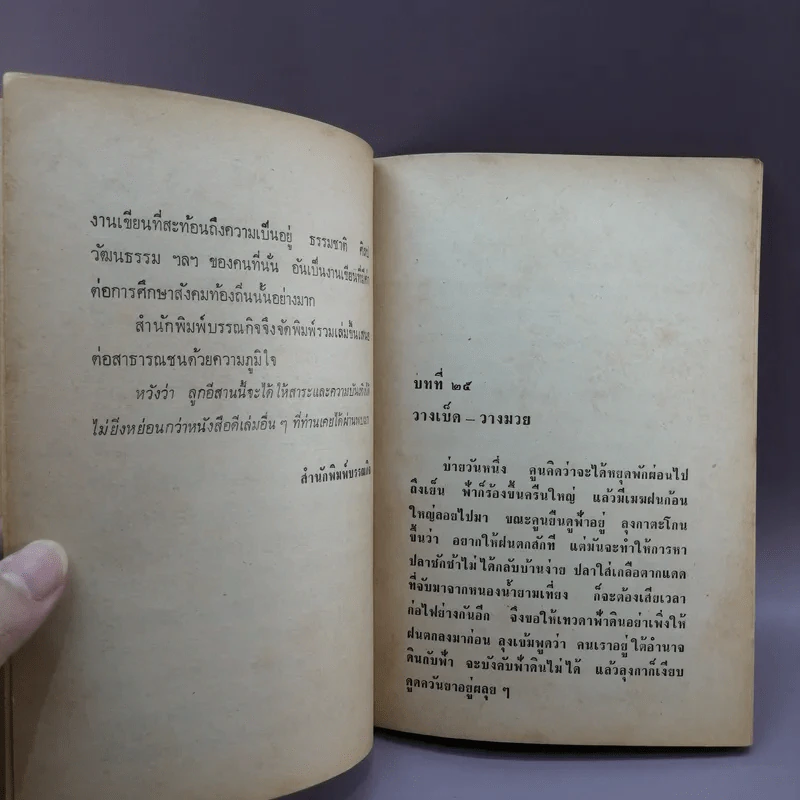 งานเขียนที่สะท้อนถึงความเป็นอยู่ ธรรมชาติ ศิลป
วัฒนธรรม ฯลฯ ของคนที่นั่น อันเป็นงานเขียนที่มีค่า
ต่อการศึกษาสังคมท้องถิ่นนั้นอย่างมาก
สำนักพิมพ์บรรณกิจจึงจัดพิมพ์รวมเล่มขึ้นเสนอ
ต่อสาธารณชนด้วยความภูมิใจ
หวังว่า ลูกอีสานนี้จะได้ให้สาระและความบันเทิงใจ
ไม่ยิ่งหย่อนกว่าหนังสือดีเล่มอื่น ๆ ที่ท่านเคยได้ผ่านพบมา
สำนักพิมพ์บรรณกิจ
บทที่ ๒๕
วางเบ็ด – วางมวย
บ่ายวันหนึ่ง คูนคิดว่าจะได้หยุดพักผ่อนไป
ถึงเย็น ฟ้าก็ร้องขึ้นครืนใหญ่ แล้วมีเมฆฝนก้อน
ใหญ่ลอยไปมา ขณะคูนยืนดูฟ้าอยู่ ลุงกาตะโกน
ขึ้นว่า อยากให้ฝนตกสักที แต่มันจะทำให้การหา
ปลาชักช้าไม่ได้กลับบ้านง่าย ปลาใส่เกลือตากแดด
ที่จับมาจากหนองน้ำยามเที่ยง ก็จะต้องเสียเวลา
ก่อไฟย่างกันอีก จึงขอให้เทวดาฟ้าดินอย่าเพิ่งให้
ฝนตกลงมาก่อน ลุงเข้มพูดว่า คนเราอยู่ใต้อำนาจ
ดินกับฟ้า จะบังคับฟ้าดินไม่ได้ แล้วลุงกาก็เงียบ
ดูดควันยาอยู่ผลุย ๆ